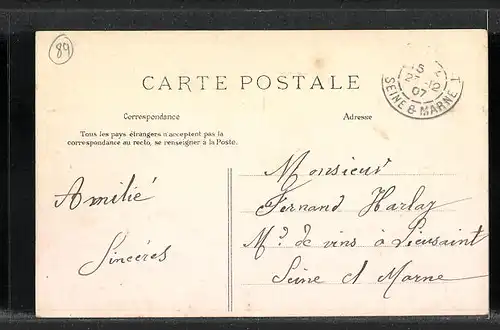 89
CARTE POSTALE
5
21 -12
07
SEINE & MARNE
Correspondance
Adresse
Tous les pays étrangers n'acceptent pas la
correspondance au recto, se renseigner a la Poste.
Monsieur
Fernand Harlay
Md de vins à Lieusaint
Seine et Marne
Amitié
Sincéres